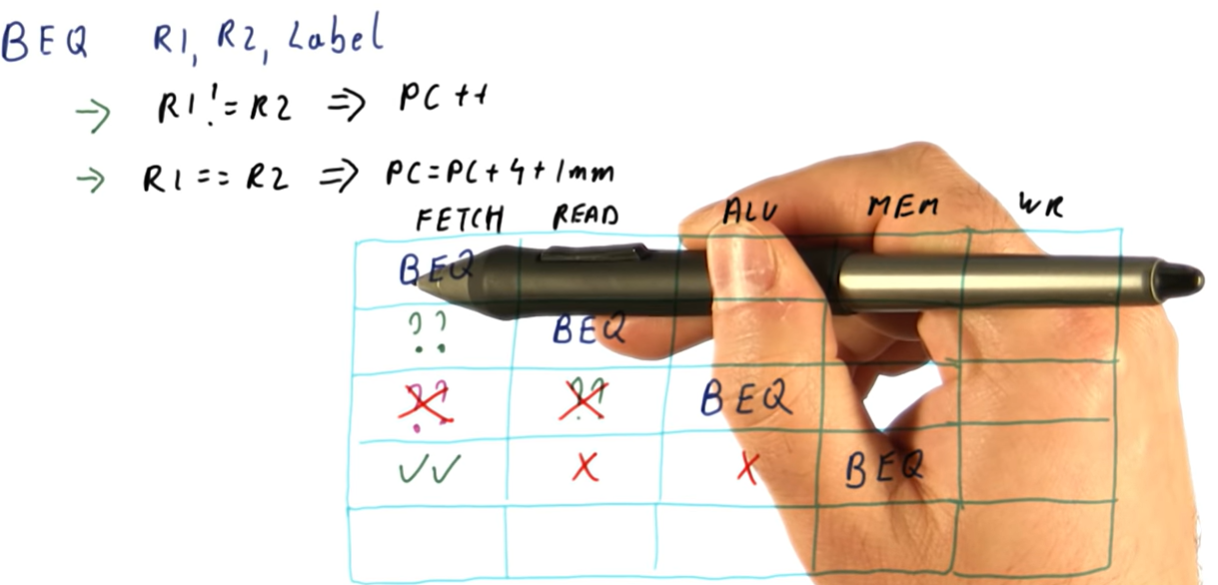 BEQ R1, R2, Label
→ R1 != R2 ⇒ PC++
→ R1 == R2 ⇒ PC=PC+4+Imm
FETCH READ ALU MEM WR
BEQ
?? BEQ
?? ?? BEQ
✓✓ X X BEQ